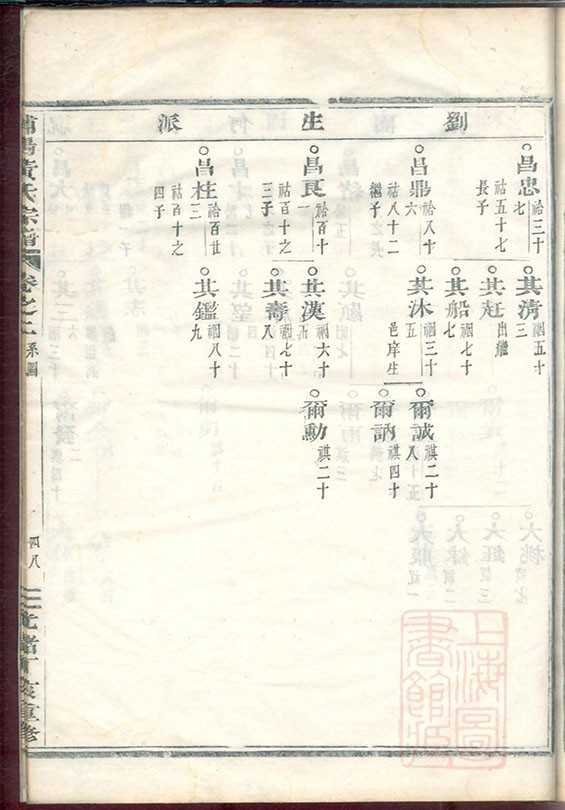 劉生派
昌忠
祫三十七
祜五十七
長子
其清
祻五十三
其𧺆
出繼
其船
祻七十七
昌鼎
祫八十六
祜八十二
繼子
其沐
祻三十五
邑庠生
爾誠
祺二十八
爾訥
祺四十
昌良
祫百十一
祜百十之
三子
其漢
祻六十五
其壽
祻七十八
爾勳
祺二十
昌柱
祫百廿二
祜百十之
四子
其鑑
祻八十九
黃氏宗譜
卷之二
系圖
四八
光緒丁亥重修
上海圖書館藏